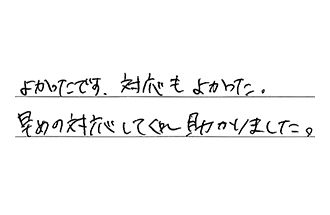 よかったです、対応もよかった。
早めの対応してくれ助かりました。